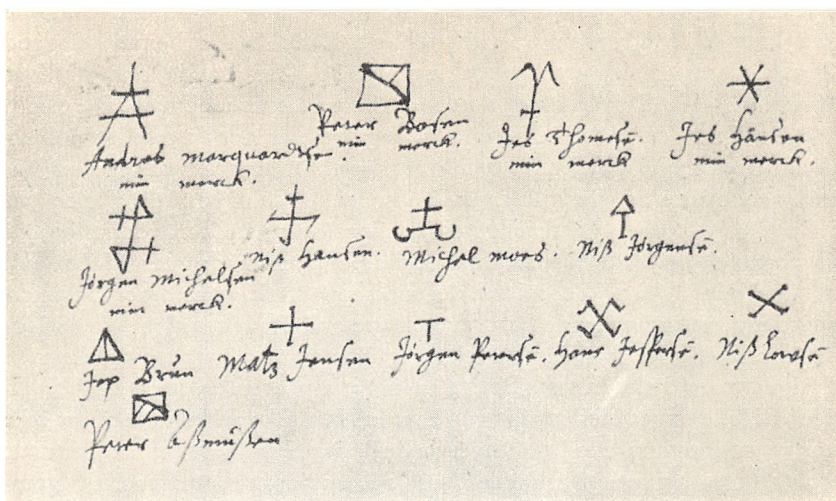 Andres marquardtsen
min merck.
Peter Bosen
min merck.
Jes Thomesē.
min merck
Jes Hansen
min merck.
Jörgen Michelsen
min merck.
Niß Hansen.
Michel moes.
Niß Jörgensē.
Jep Brun
Matz Jensen
Jörgen Petersē.
Hans Jeßersē.
Niß
Peter